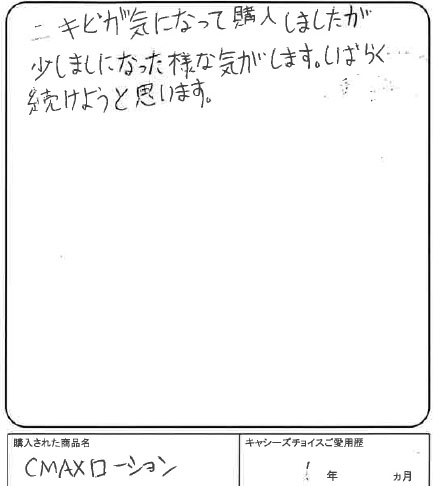 ニキビが気になって購入しましたが
少しましになった様な気がします。しばらく
続けようと思います。
購入された商品名
CMAXローション
キャシーズチョイスご愛用歴
1年 ヵ月